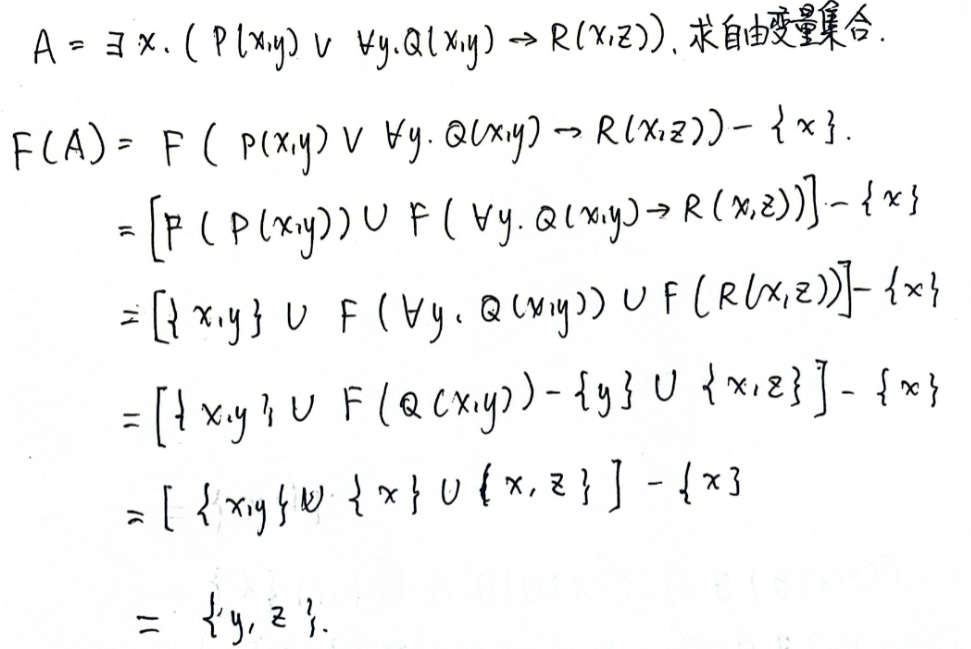 A = ∃x.(P(x,y) ∨ ∀y.Q(x,y) → R(x,z)), 求自由变量集合.
F(A) = F(P(x,y) ∨ ∀y.Q(x,y) → R(x,z)) - {x}.
= [F(P(x,y)) ∪ F(∀y.Q(x,y) → R(x,z))] - {x}
= [{x,y} ∪ F(∀y.Q(x,y)) ∪ F(R(x,z))] - {x}
= [{x,y} ∪ F(Q(x,y)) - {y} ∪ {x,z}] - {x}
= [{x,y} ∪ {x} ∪ {x,z}] - {x}
= {y,z}.